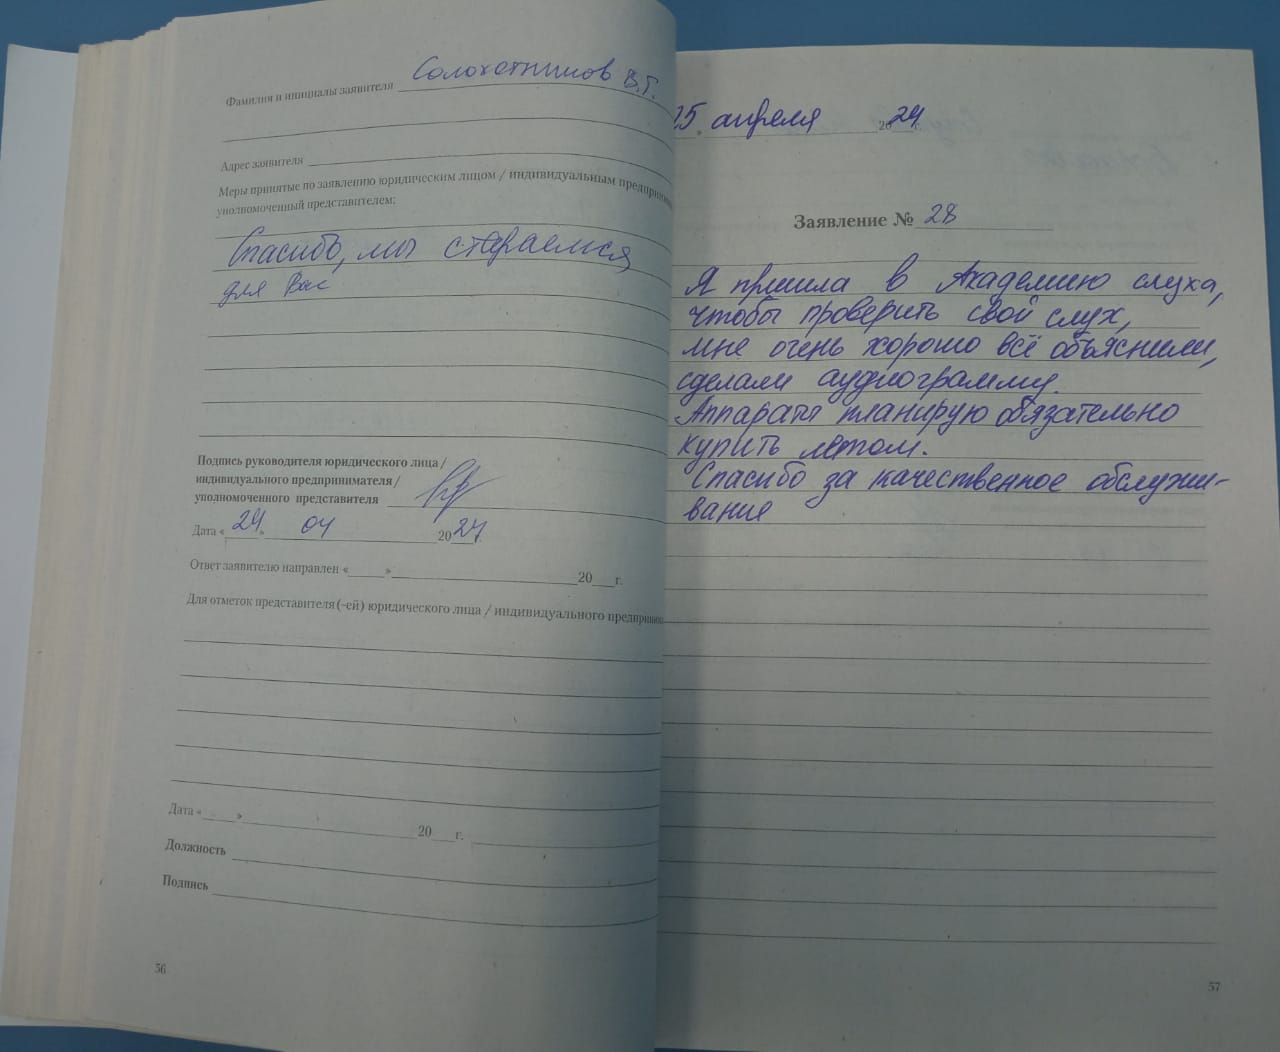 Фамилия и инициалы заявителя Солохатников В.Г.
Адрес заявителя
Меры принятые по заявлению юридическим лицом / индивидуальным предприни
уполномоченный представителем:
Спасибо, мы стараемся
для Вас
Подпись руководителя юридического лица /
индивидуального предпринимателя /
уполномоченного представителя
Дата «24» 04 2024г.
Ответ заявителю направлен «____»____20__г.
Для отметок представителя(-ей) юридического лица / индивидуального предприни
Дата «____»____20__г.
Должность
Подпись
56
25 апреля 2024г.
Заявление № 28
Я пришла в Академию слуха,
чтобы проверить свой слух,
мне очень хорошо всё объяснили,
сделали аудиограмму.
Аппараты планирую обязательно
купить летом.
Спасибо за качественное обслужи-
вание
57